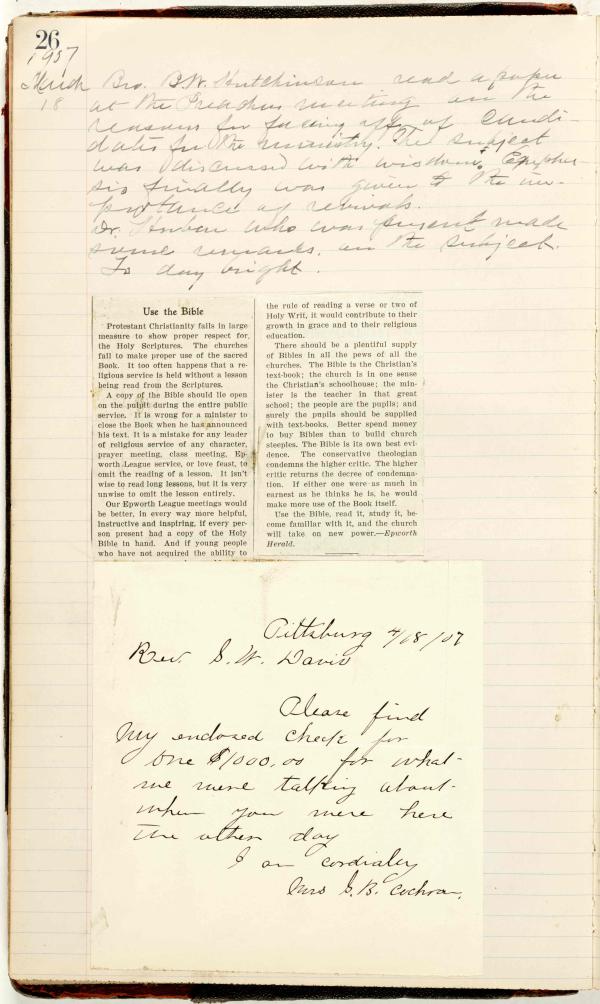 26
1907
March 18
Bro. B.W. Hutchinson read a paper
at the Preachers meeting on the
reasons for of candi-
dates for the ministry. The subject
was discussed with wisdom. Empha-
sis finally was given to the im-
portance of revivals.
Dr. who was present made
some remarks, on the subject.
To day bright.
Use the Bible
Protestant Christianity fails in large
measure to show proper respect for
the Holy Scriptures. The churches
fail to make proper use of the sacred
Book. It too often happens that a re-
ligious service is held without a lesson
being read from the Scriptures.
A copy of the Bible should lie open
on the pulpit during the entire public
service. It is wrong for a minister to
close the Book when he has announced
his text. It is a mistake for any leader
of religious service of any character,
prayer meeting, class meeting, Ep-
worth League service, or love feast, to
omit the reading of a lesson. It isn't
wise to read long lessons, but it is very
unwise to omit the lesson entirely.
Our Epworth League meetings would
be better, in every way more helpful,
instructive and inspiring, if every per-
son present had a copy of the Holy
Bible in hand. And if young people
who have not acquired the ability to
the rule of reading a verse or two of
Holy Writ, it would contribute to their
growth in grace and to their religious
education.
There should be a plentiful supply
of Bibles in all the pews of all the
churches. The Bible is the Christian's
text-book; the church is in one sense
the Christian's schoolhouse; the min-
ister is the present in that great
school; the people are the pupils; and
surely the pupils should be supplied
with text-books. Better spend money
to buy Bibles than to build church
steeples. The Bible is its own best evi-
dence. The conservative theologian
condemns the higher critic. The higher
critic returns the decree of condemna-
tion. If either one were as much in
earnest as he thinks he is, he would
make more use of the Book itself.
Use the Bible, read it, study it, be-
come familiar with it, and the church
will take on new power.—Epworth
Herald.
Pittsburg 4/18/07
Rev. S. W. Davis
Please find
My enclosed check for
One $1000.00 for what
we were talking about
when you were here
the other day
I am cordialey
Mrs G. B. Cochran.